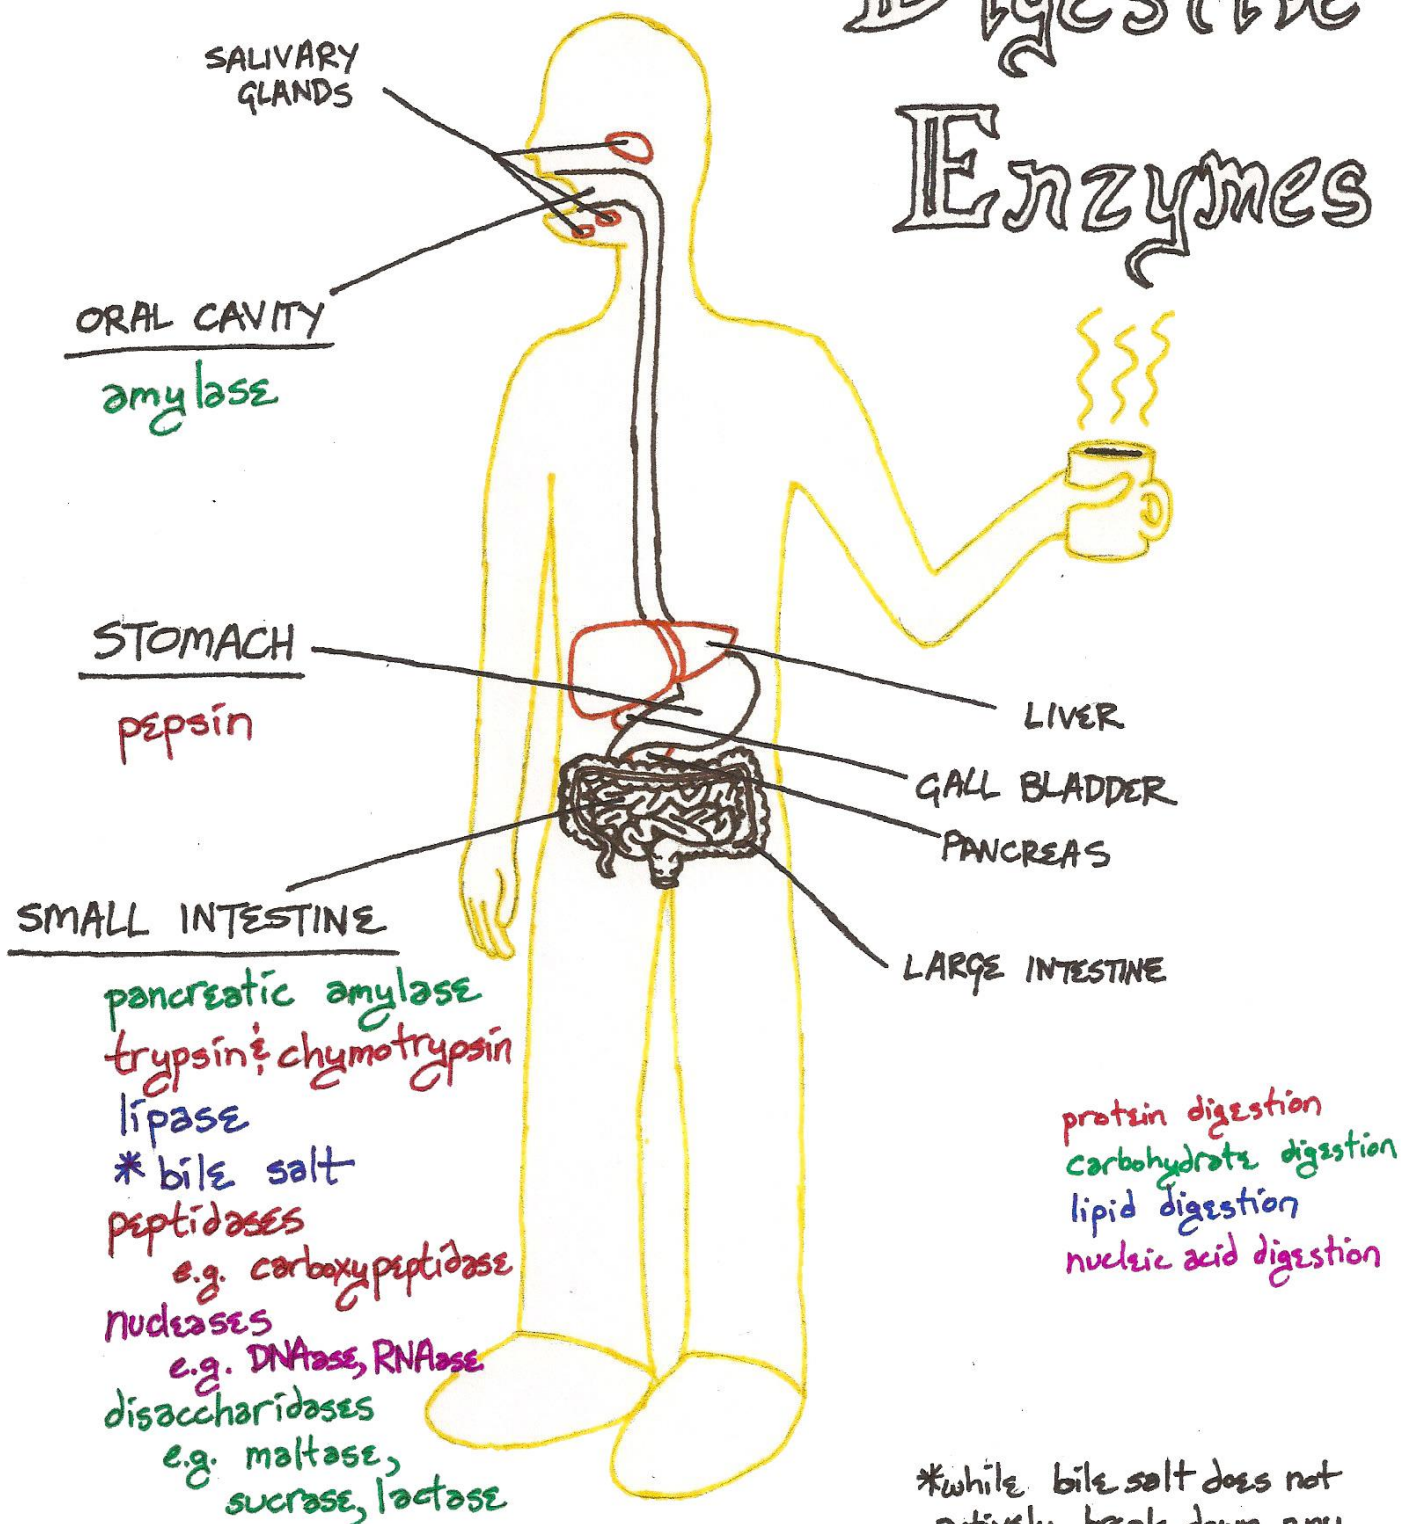 Digestive
Enzymes
SALIVARY
GLANDS
ORAL CAVITY
amylase
STOMACH
pepsin
LIVER
GALL BLADDER
PANCREAS
SMALL INTESTINE
LARGE INTESTINE
pancreatic amylase
trypsin & chymotrypsin
lipase
* bile salt
peptidases
e.g. carboxypeptidase
nucleases
e.g. DNAase, RNAase
disaccharidases
e.g. maltase,
sucrase, lactase
protein digestion
carbohydrate digestion
lipid digestion
nucleic acid digestion
*while bile salt does not
actively break down any